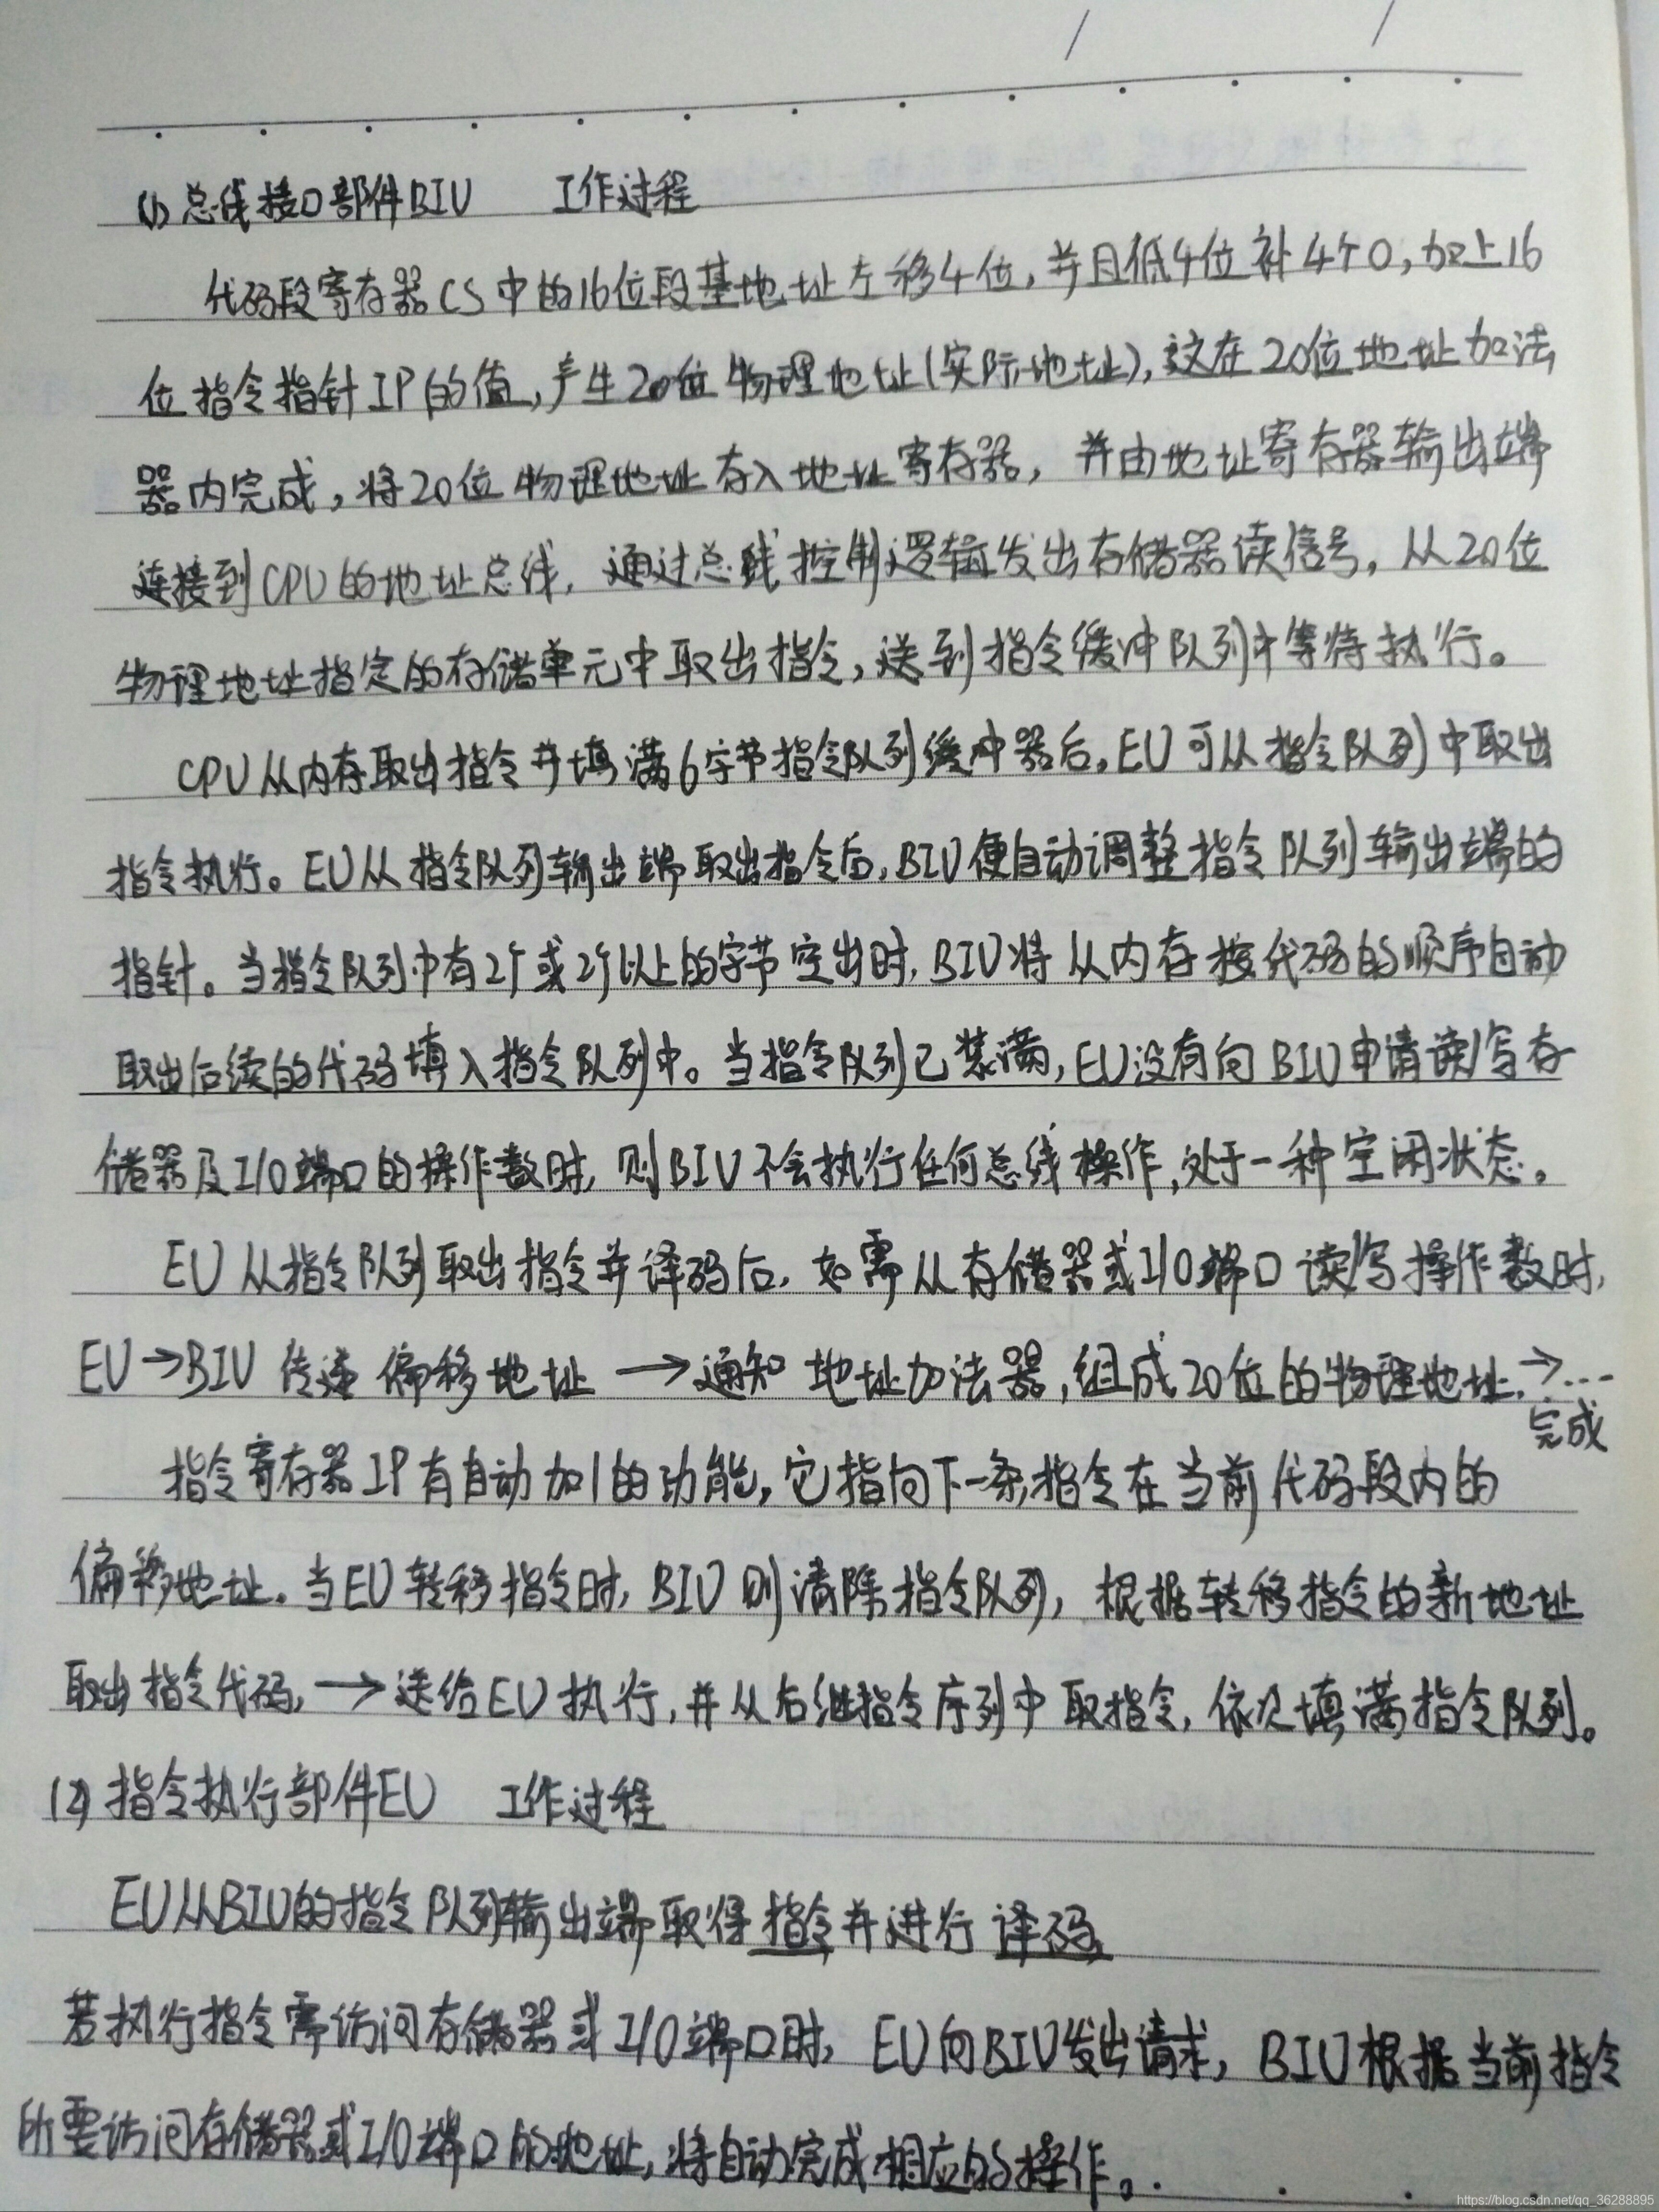 (1) 总线接口部件BIU 工作过程
代码段寄存器CS中的16位段基地址左移4位,并且低4位补4个0,加上16
位指令指针IP的值,产生20位物理地址(实际地址),这在20位地址加法
器内完成,将20位物理地址存入地址寄存器,并由地址寄存器输出端
连接到CPU的地址总线,通过总线控制逻辑发出存储器读信号,从20位
物理地址指定的存储单元中取出指令,送到指令缓冲队列中等待执行。
CPU从内存取出指令并填满6字节指令队列缓冲器后,EU可从指令队列中取出
指令执行。EU从指令队列输出端取出指令后,BIU便自动调整指令队列输出端的
指针。当指令队列中有2个或2个以上的字节空出时,BIU将从内存按代码的顺序自动
取出后续的代码填入指令队列中。当指令队列已装满,EU没有向BIU申请读/写存
储器及I/O端口的操作数时,则BIU不会执行任何总线操作,处于一种空闲状态。
EU从指令队列取出指令并译码后,如需从存储器或I/O端口读/写操作数时,
EU→BIU 传递 偏移地址 →通知 地址加法器,组成20位的物理地址.→...
完成
指令寄存器IP有自动加1的功能,它指向下一条指令在当前代码段内的
偏移地址.当EU转移指令时,BIU则清除指令队列,根据转移指令的新地址
取出指令代码,→送给EU执行,并从后继指令序列中取指令,依次填满指令队列。
(2) 指令执行部件EU 工作过程
EU从BIU的指令队列输出端取得指令并进行译码,
若执行指令需访问存储器或I/O端口时,EU向BIU发出请求,BIU根据当前指令
所要访问存储器或I/O端口的地址,将自动完成相应的操作。
https://blog.csdn.net/qq_36288895